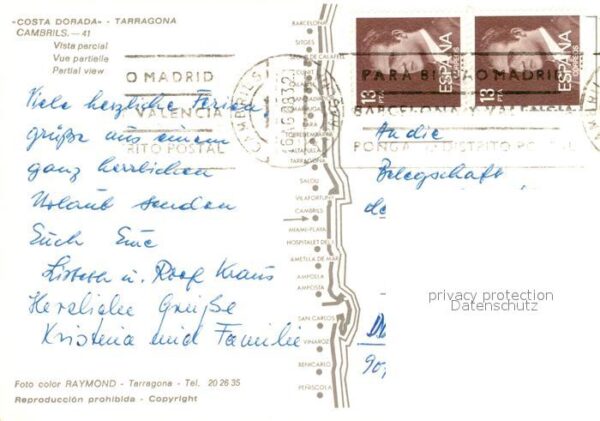 «COSTA DORADA» - TARRAGONA
CAMBRILS. — 41
Vista parcial
Vue partielle
Partial view
O MADRID
VALENCIA
RITO POSTAL
CAMBRILS
Viele herzliche Ferien,
grüße aus einem
ganz herrlichen
Urlaub senden
Euch Eure
Lisbeth u. Rolf Kraus
Herzliche Grüße
Kristina und Familie
Foto color RAYMOND - Tarragona - Tel. 20 26 35
Reproducción prohibida - Copyright
BARCELONA
SITGES
CUNIT
ALTAFULLA
TARRAGONA
SALOU
VILAFORTUNY
CAMBRILS
MIAMI-PLATA
HOSPITALET DEL I.
AMETLLA DE MAR
AMPOLLA
AMPOSTA
SAN CARLOS
VINAROZ
BENICARLO
PEÑISCOLA
13 PTA
ESPAÑA
CORREOS
13 PTA
ESPAÑA
CORREOS
PARA BI O MADRID
BARCELONA Y VALENCIA
PONGA DISTRITO POSTAL
An die
Belegschaft
privacy protection
Datenschutz